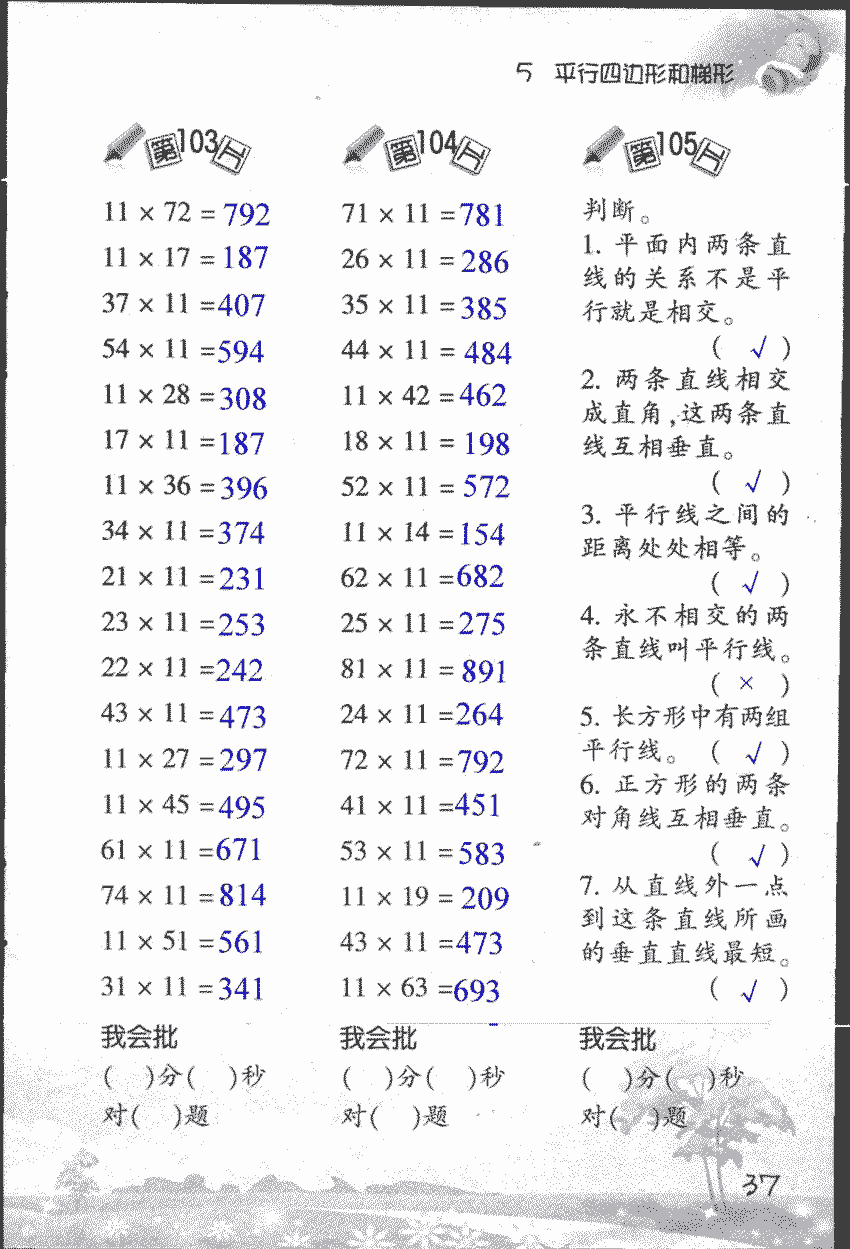 5 平行四边形和梯形
第103天
11 × 72 = 792
11 × 17 = 187
37 × 11 = 407
54 × 11 = 594
11 × 28 = 308
17 × 11 = 187
11 × 36 = 396
34 × 11 = 374
21 × 11 = 231
23 × 11 = 253
22 × 11 = 242
43 × 11 = 473
11 × 27 = 297
11 × 45 = 495
61 × 11 = 671
74 × 11 = 814
11 × 51 = 561
31 × 11 = 341
我会批
( )分( )秒
对( )题
第104天
71 × 11 = 781
26 × 11 = 286
35 × 11 = 385
44 × 11 = 484
11 × 42 = 462
18 × 11 = 198
52 × 11 = 572
11 × 14 = 154
62 × 11 = 682
25 × 11 = 275
81 × 11 = 891
24 × 11 = 264
72 × 11 = 792
41 × 11 = 451
53 × 11 = 583
11 × 19 = 209
43 × 11 = 473
11 × 63 = 693
我会批
( )分( )秒
对( )题
第105天
判断。
1. 平面内两条直
线的关系不是平
行就是相交。
( √ )
2. 两条直线相交
成直角,这两条直
线互相垂直。
( √ )
3. 平行线之间的
距离处处相等。
( √ )
4. 永不相交的两
条直线叫平行线。
( × )
5. 长方形中有两组
平行线。 ( √ )
6. 正方形的两条
对角线互相垂直。
( √ )
7. 从直线外一点
到这条直线所画
的垂直直线最短。
( √ )
我会批
( )分( )秒
对( )题
37